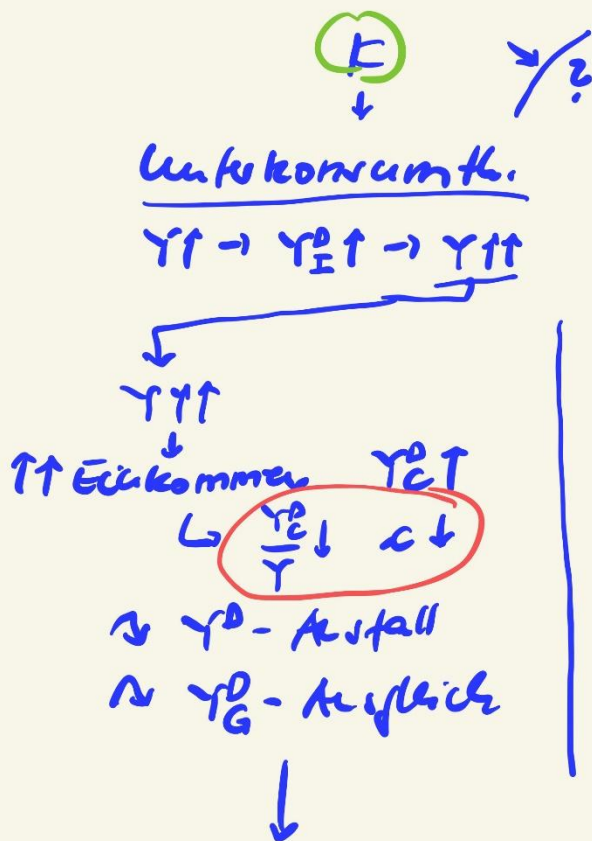 K
?
Unterkonsumth.
Y↑ → Y^D_I ↑ → Y↑↑
YY↑
↑↑ Einkommen Y^D_C ↑
↳ Y^D_C / Y ↓ c ↓
↷ Y^D - Ausfall
↷ Y^D_G - Ausgleich